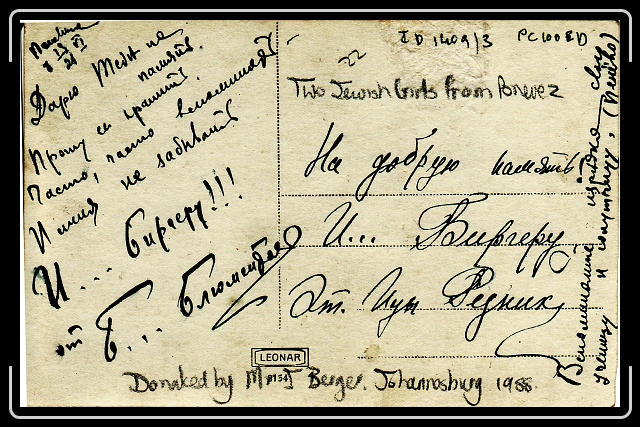 8 13/VI 21
Дарю Тебе на
память.
Прошу ее хранить
Часто, часто вспоминать
И меня не забывать
И... Биргеру!!!
от Б... Блюменталь
ID 1409/3 PC100ED
22
Two Jewish Girls from Ponevez
На добрую память
И... Биргеру
От. Иды Резник
Вспоминание изредка свою
ученицу и
LEONAR
Donated by Mr J Berger. Johannesburg 1988.